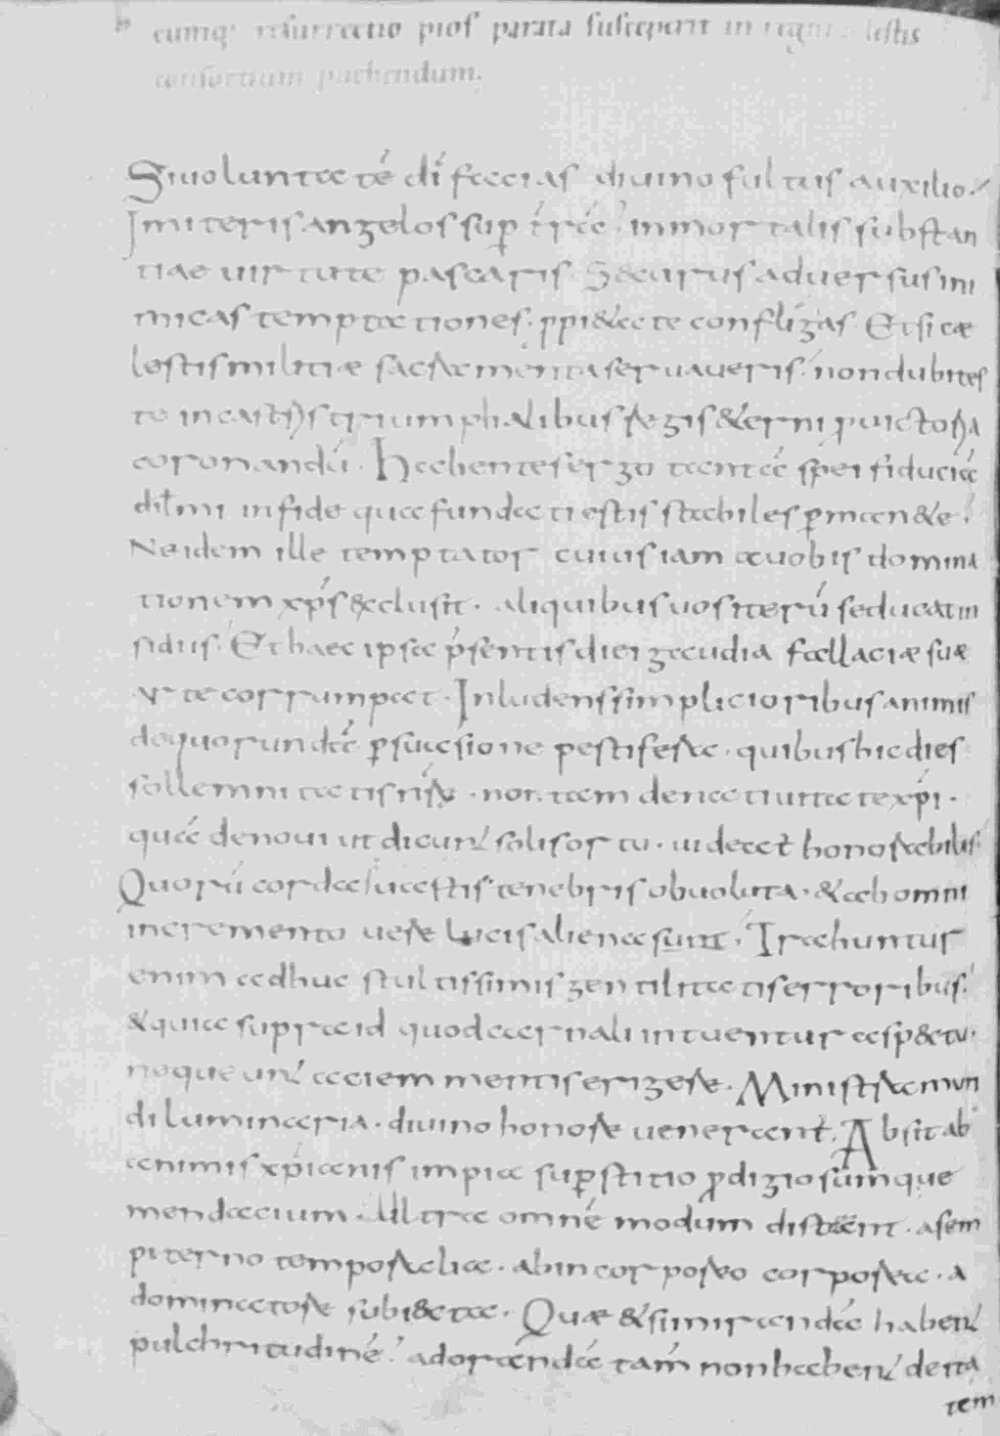 cumq; resurrectio pios parata susceperit in regni lestis
consortium
Si uoluntatē dī facias diuino fultus auxilio
Imiteris angelos sup trā inmortalis substan
tiae uirtute pascaris Securus aduersus ini
micas temptationes ppi&ate confligas Et si cæ
lestis militiæ sacramenta seruaueris non dubites
te in castris triumphalibus regis &erni puictoria
coronandū. Habentes ergo tantā spei fiduciā
dilmi in fide qua fundati estis stabiles pman&e
Ne idem ille temptator cuius iam a uobis domina
tionem xps exclusit. aliquibus uos iterū seducat in
sidiis. Et haec ipsa psentis diei gaudia fallaciæ suæ
arte corrumpat. Inludens simplicioribus animis
de quorundā psuasione pestifera. quibus hic dies
sollemnitatis nrae. non tam de natiuitate xpi.
quā de noui ut dicun& solis ortu. uideat honorabilis
Quorū corda uastis tenebris obuoluta. & ab omni
incremento uere lucis aliena sunt. Trahuntur
enim adhuc stultissimis gentilitatis erroribus.
& quia supra id quod carnali intuentur aspectu.
nequeun& aciem mentis erigere. Ministra mun
di luminaria. diuino honore uenerant. Absit ab
animis xpianis impia supstitio pdigiosumque
mendacium. Ultra omnē modum distant. a sem
piterno temporalia. ab incorporeo corporea. a
dominatore subiecta. Quæ & si mirandā haben&
pulchritudinē adorandā tam non haben& deita
tem